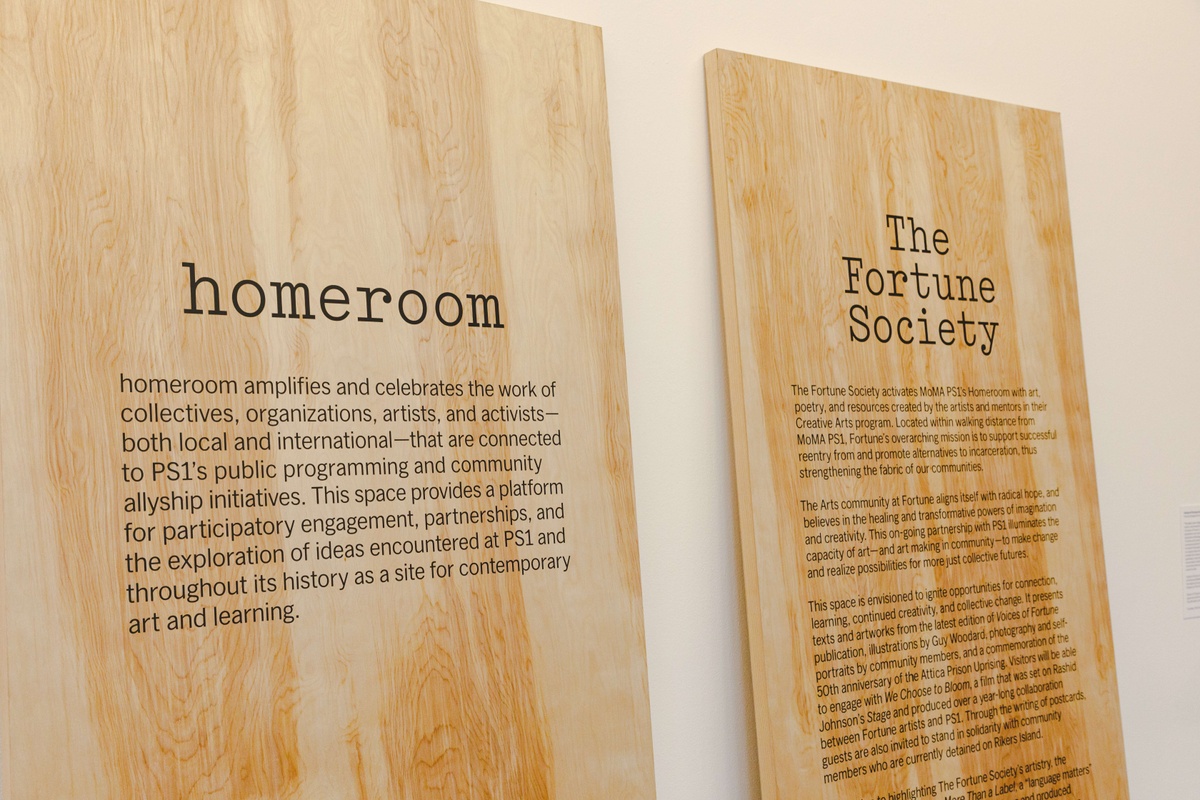 homeroom
homeroom amplifies and celebrates the work of
collectives, organizations, artists, and activists—
both local and international—that are connected
to PS1's public programming and community
allyship initiatives. This space provides a platform
for participatory engagement, partnerships, and
the exploration of ideas encountered at PS1 and
throughout its history as a site for contemporary
art and learning.
The
Fortune
Society
The Fortune Society activates MoMA PS1's Homeroom with art,
poetry, and resources created by the artists and mentors in their
Creative Arts program. Located within walking distance from
MoMA PS1, Fortune's overarching mission is to support successful
reentry from and promote alternatives to incarceration, thus
strengthening the fabric of our communities.
The Arts community at Fortune aligns itself with radical hope, and
believes in the healing and transformative powers of imagination
and creativity. This on-going partnership with PS1 illuminates the
capacity of art—and art making in community—to make change
and realize possibilities for more just collective futures.
This space is envisioned to ignite opportunities for connection,
learning, continued creativity, and collective change. It presents
texts and artworks from the latest edition of Voices of Fortune
publication, illustrations by Guy Woodard, photography and self-
portraits by community members, and a commemoration of the
50th anniversary of the Attica Prison Uprising. Visitors will be able
to engage with We Choose to Bloom, a film that was set on Rashid
Johnson's Stage and produced over a year-long collaboration
between Fortune artists and PS1. Through the writing of postcards,
guests are also invited to stand in solidarity with community
members who are currently detained on Rikers Island.
to highlighting The Fortune Society's artistry, the
More Than a Label, a "language matters"
and produced